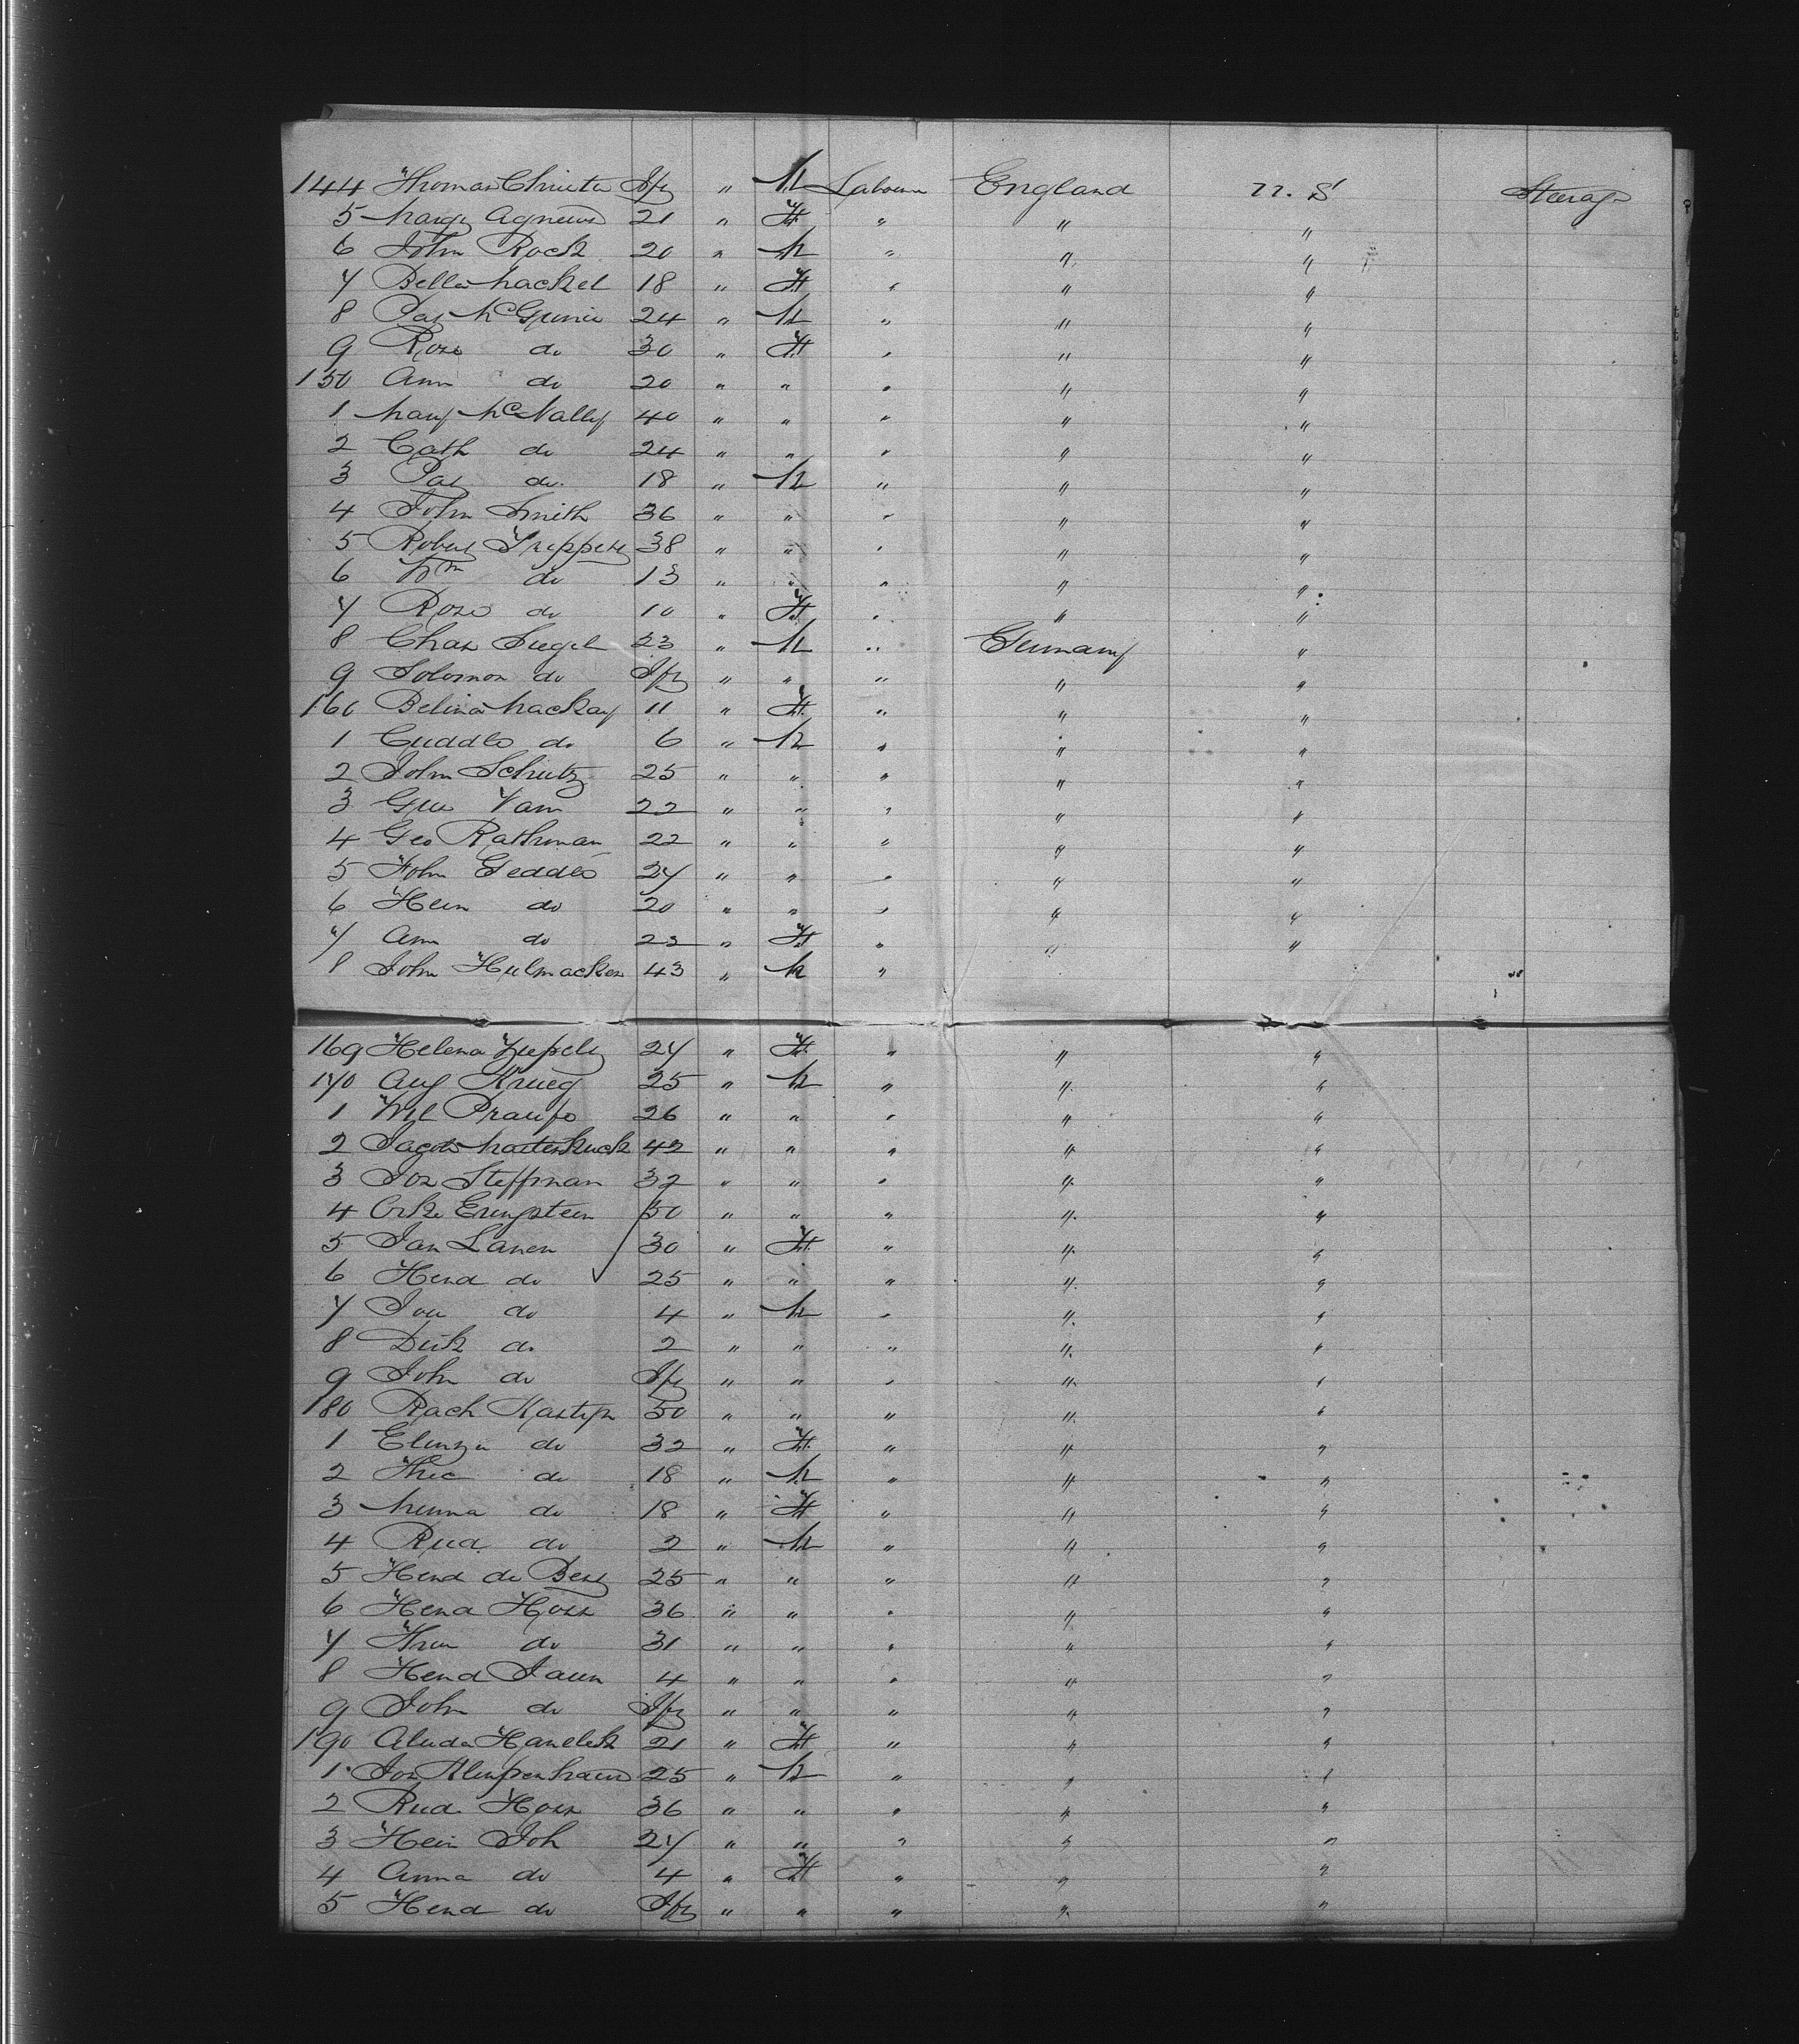 144 Thomas Christer Inf " M Labourer England U. S Steerage
5 Margt Agnew 21 " F " " "
6 John Rock 20 " M " " "
7 Bella Mackel 18 " F " " "
8 Pat McGinnis 24 " M " " "
9 Rose do 30 " F " " "
150 Ann do 20 " " " " "
1 Mary McNally 40 " " " " "
2 Cath do 24 " " " " "
3 Pat do. 18 " M " " "
4 John Smith 36 " " " " "
5 Robert 38 " " " " "
6 Wm do 13 " " " " "
7 Rose do 10 " F " " "
8 Chas Siegel 23 " M " Germany "
9 Solomon do Inf " " " " "
160 Belina Mackay 11 " F " " "
1 do 6 " M " " "
2 John Schutz 25 " " " " "
3 Geo 22 " " " " "
4 Geo Rathman 22 " " " " "
5 John Geddes 27 " " " " "
6 Hein do 20 " " " " "
7 Ann do 22 " F " " "
8 John Hulmacker 43 " M "
169 Helena 27 " F " " "
170 Aug Krueg 25 " M " " "
1 Wil 26 " " " " "
2 Jacob 42 " " " " "
3 Jos Steffman 32 " " " " "
4 50 " " " " "
5 Jan Lanen 30 " F " " "
6 Hend do 25 " " " " "
7 do 4 " M " " "
8 Dirk do 2 " " " " "
9 John do Inf " " " " "
180 Rach 50 " " " " "
1 do 32 " F " " "
2 do 18 " M " " "
3 Minna do 18 " F " " "
4 Rud. do 2 " M " " "
5 Hend de Best 25 " " " " "
6 Hend Hoss 36 " " " " "
7 do 31 " " " " "
8 Hend 4 " " " " "
9 John do Inf " " " " "
190 21 " F " " "
1 Jos 25 " M " " "
2 Rud. Hoss 36 " " " " "
3 Hein Joh 27 " " " " "
4 Anna do 4 " F " " "
5 Hend do Inf " " " " "